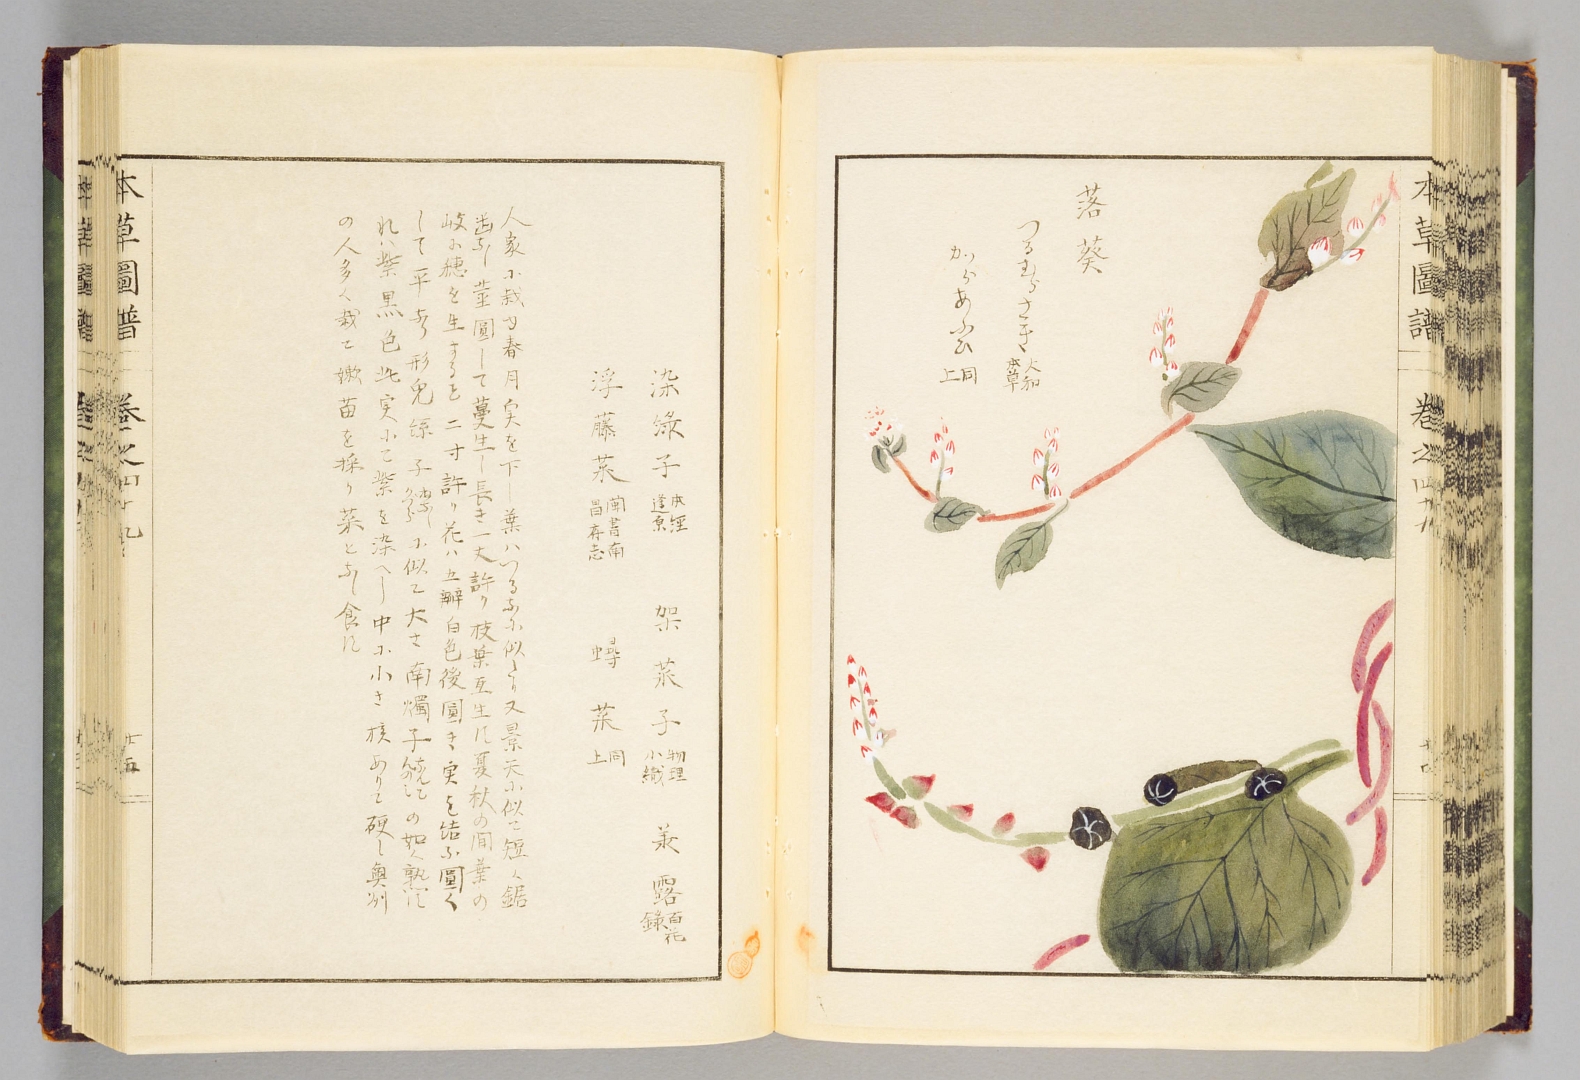 本草圖譜 巻之四十九
落葵
つるむらさき 大和本草
からあふひ 同上
染絳子 本經逢原 架菜子 物理小識 承露 百花錄
浮藤菜 閩書南昌存志 蟳菜 同上
人家に栽ゆ春月実を下し葉ハつるなに似たり又景天に似て短く鋸
歯なし莖圓して蔓生し長さ一丈許り枝葉互生す夏秋の間葉の
岐に穂を生すること二寸許り花ハ五瓣白色後圓き実を結ふ圓く
して平あり形兎絲子に似て大さ南燭子の如く熟す
れハ紫黒色此実にて紫を染へし中に小さき核ありて硬し奥州
の人多く栽て嫩苗を採り菜となし食す
本草圖譜 巻之四十九 廿五